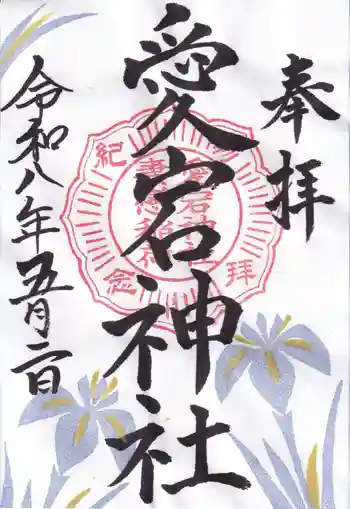 奉拝
愛宕神社
令和八年五月二日
紀
念
拝